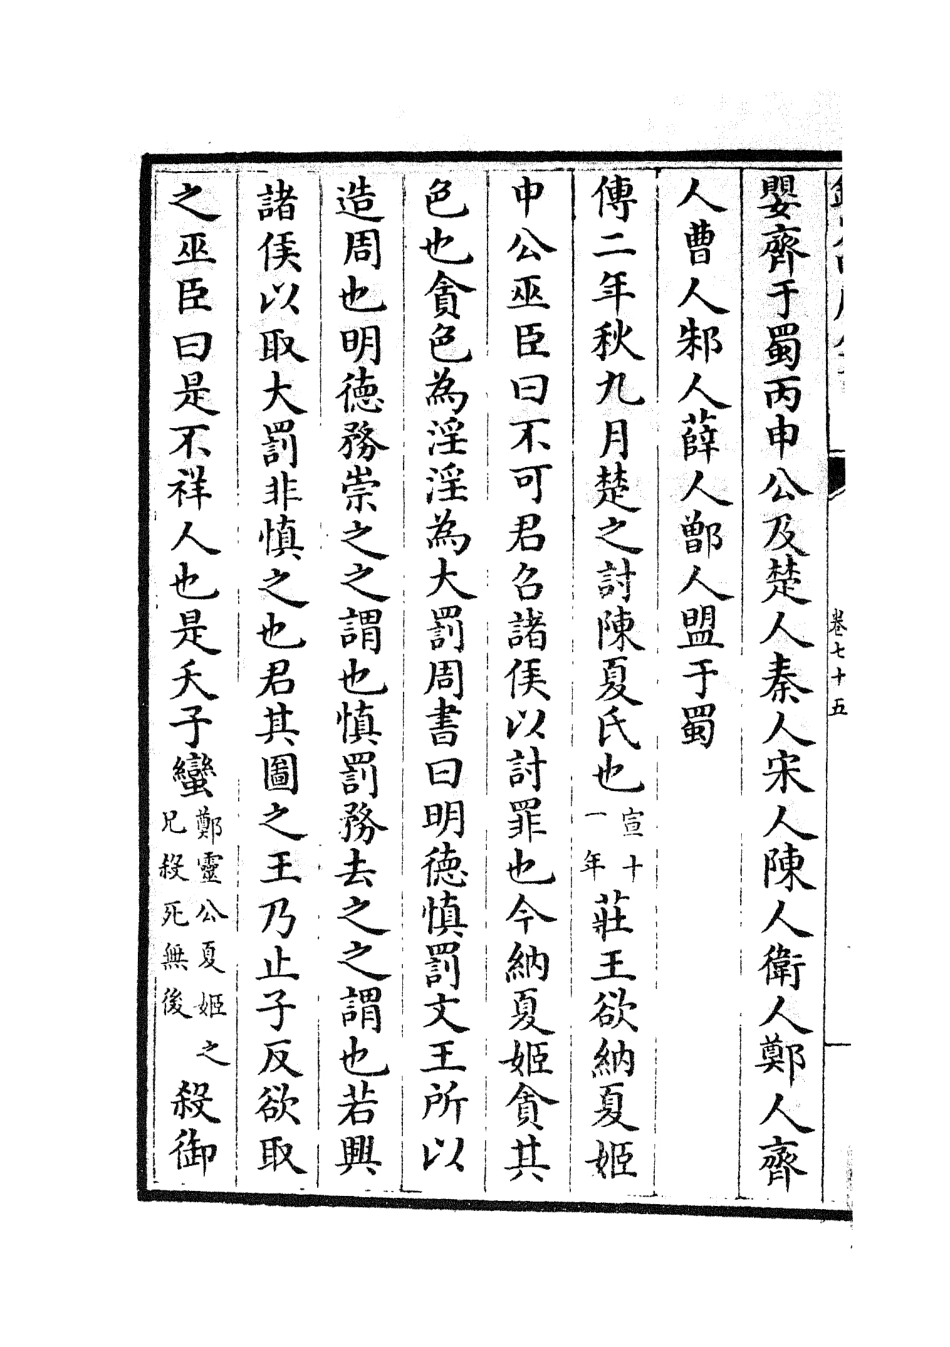 卷七十五
嬰齊于蜀丙申公及楚人秦人宋人陳人衛人鄭人齊
人曹人邾人薛人鄫人盟于蜀
傳二年秋九月楚之討陳夏氏也宣十一年莊王欲納夏姬
申公巫臣曰不可君召諸侯以討罪也今納夏姬貪其
色也貪色為淫淫為大罰周書曰明德慎罰文王所以
造周也明德務崇之之謂也慎罰務去之之謂也若興
諸侯以取大罰非慎之也君其圖之王乃止子反欲取
之巫臣曰是不祥人也是夭子蠻鄭靈公夏姬之兄殺死無後殺御